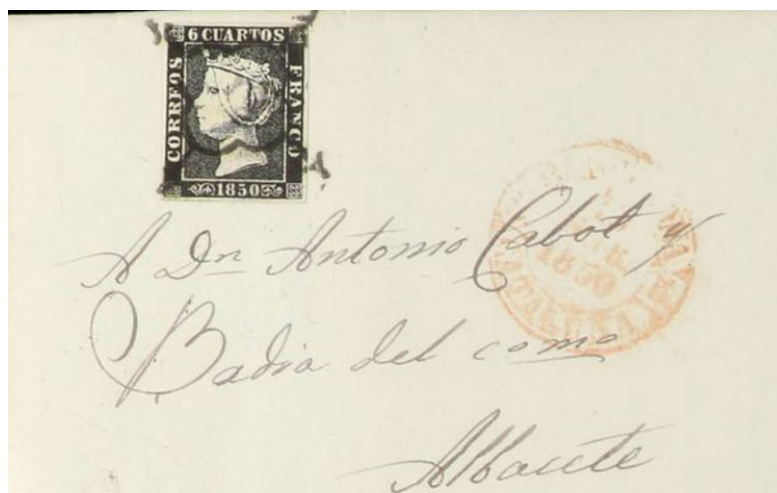 6 CUARTOS
CORREOS
FRANCO
1850
1850
A Dn Antonio Cabot y
Badia del como
Albacete